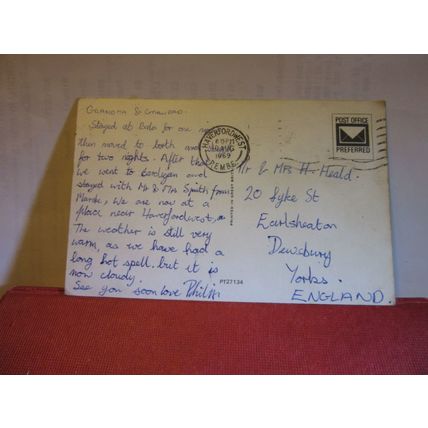 GRANDMA & GRANDAD.
Stayed at Bala for one
then moved to
for two nights. After that
we went to Cardigan and
stayed with Mr & Mrs Smith from
We are now at a
place near Haverfordwest,
The weather is still very
warm, as we have had a
long hot spell. but it is
now cloudy.
See you soon love Philip
HAVERFORDWEST
AUG
1969
PEMBS
POST OFFICE
PREFERRED
Mr & Mrs H. Heald.
20 Syke St
Earlsheaton
Dewsbury
Yorks.
ENGLAND.
PT27134